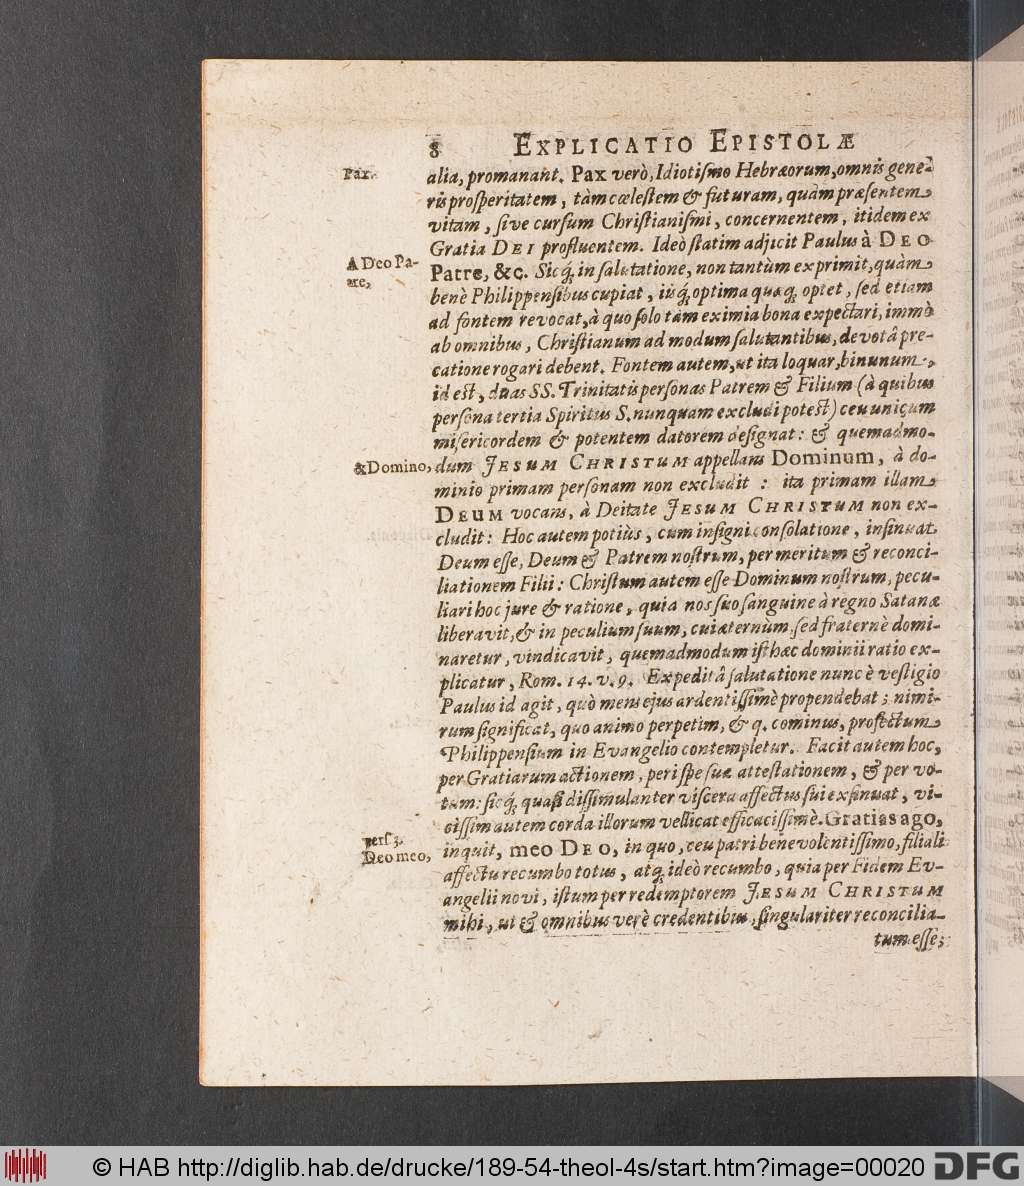 8 EXPLICATIO EPISTOLÆ
Pax.
alia, promanant. Pax verò, Idiotiſmo Hebræorum, omnis gene-
ris proſperitatem, tàm cœleſtem & futuram, quàm præſentem
vitam, ſive curſum Chriſtianiſmi, concernentem, itidem ex
Gratia DEI profluentem. Ideò ſtatim adjicit Paulus à DEO
A Deo Pa-
tre,
Patre, &c. Sicq́; in ſalutatione, non tantùm exprimit, quàm
benè Philippenſibus cupiat, iisq́; optima quæq; optet, ſed etiam
ad fontem revocat, à quo ſolo tàm eximia bona expectari, immò
ab omnibus, Chriſtianum ad modum ſalutantibus, devotâ pre-
catione rogari debent. Fontem autem, ut ita loquar, binunum,
id eſt, duas SS. Trinitatis perſonas Patrem & Filium (à quibus
perſona tertia Spiritus S. nunquam excludi poteſt) ceu unicum
miſericordem & potentem datorem deſignat: & quemadmo-
& Domino,
dum JESUM CHRISTUM appellans Dominum, à do-
minio primam perſonam non excludit : ita primam illam
DEUM vocans, à Deitate JESUM CHRISTUM non ex-
cludit: Hoc autem potiùs, cum inſigni conſolatione, inſinuat
Deum eſſe, Deum & Patrem noſtrum, per meritum & reconci-
liationem Filii: Chriſtum autem eſſe Dominum noſtrum, pecu-
liari hoc jure & ratione, quia nos ſuo ſanguine à regno Satanæ
liberavit, & in peculium ſuum, cui æternùm, ſed fraternè domi-
naretur, vindicavit, quemadmodum iſthæc dominii ratio ex-
plicatur, Rom. 14. v. 9. Expeditâ ſalutatione nunc è veſtigio
Paulus id agit, quò mens ejus ardentiſſimè propendebat; nimi-
rum ſignificat, quo animo perpetim, & q. cominus, profectum
Philippenſium in Evangelio contempletur. Facit autem hoc,
per Gratiarum actionem, per iſpe ſuæ atteſtationem, & per vo-
tum: ſicq́; quaſi diſſimulanter viſcera affectus ſui exſinuat, vi-
ciſſim autem corda illorum vellicat efficaciſſimè. Gratias ago,
verſ 3.
Deo meo,
inquit, meo DEO, in quo, ceu patri benevolentiſſimo, filiali
affectu recumbo totus, atq; ideò recumbo, quia per Fidem Ev-
angelii novi, iſtum per redemptorem JESUM CHRISTUM
mihi, ut & omnibus verè credentibus, ſingulariter reconcilia-
tum eſſe;
© HAB http://diglib.hab.de/drucke/189-54-theol-4s/start.htm?image=00020 DFG